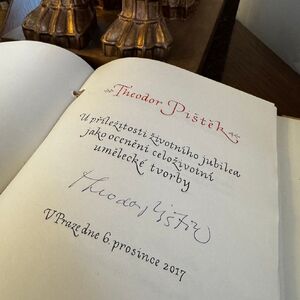 Theodor Pištěk
U příležitosti životního jubilea
jako ocenění celoživotní
umělecké tvorby
Theodor Pištěk
V Praze dne 6. prosince 2017